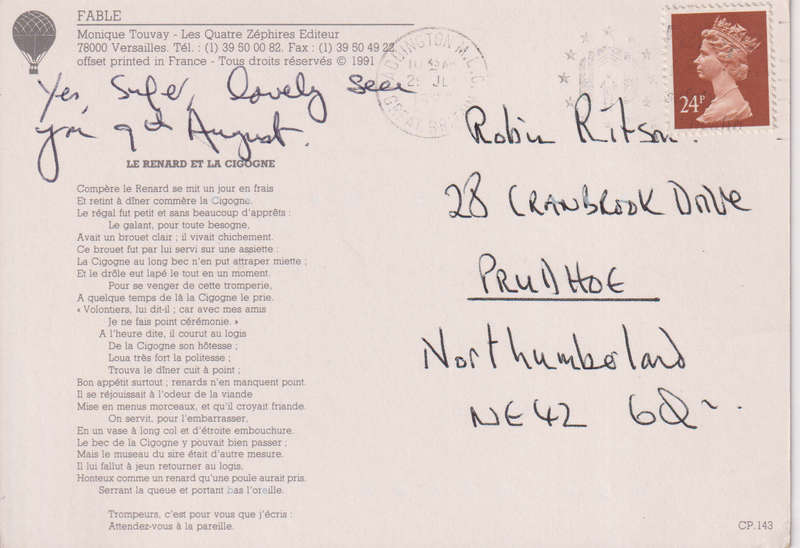 FABLE
Monique Touvay - Les Quatre Zéphires Editeur
78000 Versailles. Tél. : (1) 39 50 00 82. Fax : (1) 39 50 49 22.
offset printed in France - Tous droits réservés © 1991
Yes, lovely seen
you 9th August.
LE RENARD ET LA CIGOGNE
Compère le Renard se mit un jour en frais
Et retint à dîner commère la Cigogne.
Le régal fut petit et sans beaucoup d'apprêts :
Le galant, pour toute besogne,
Avait un brouet clair ; il vivait chichement.
Ce brouet fut par lui servi sur une assiette :
La Cigogne au long bec n'en put attraper miette ;
Et le drôle eut lapé le tout en un moment.
Pour se venger de cette tromperie,
A quelque temps de là la Cigogne le prie.
« Volontiers, lui dit-il ; car avec mes amis
Je ne fais point cérémonie. »
A l'heure dite, il courut au logis
De la Cigogne son hôtesse ;
Loua très fort la politesse ;
Trouva le dîner cuit à point ;
Bon appétit surtout ; renards n'en manquent point.
Il se réjouissait à l'odeur de la viande
Mise en menus morceaux, et qu'il croyait friande.
On servit, pour l'embarrasser,
En un vase à long col et d'étroite embouchure.
Le bec de la Cigogne y pouvait bien passer ;
Mais le museau du sire était d'autre mesure.
Il lui fallut à jeun retourner au logis,
Honteux comme un renard qu'une poule aurait pris.
Serrant la queue et portant bas l'oreille.
Trompeurs, c'est pour vous que j'écris :
Attendez-vous à la pareille.
24P
Robin Ritson.
28 CRANBROOK DRIVE
PRUDHOE
Northumberland
NE42
CP.143